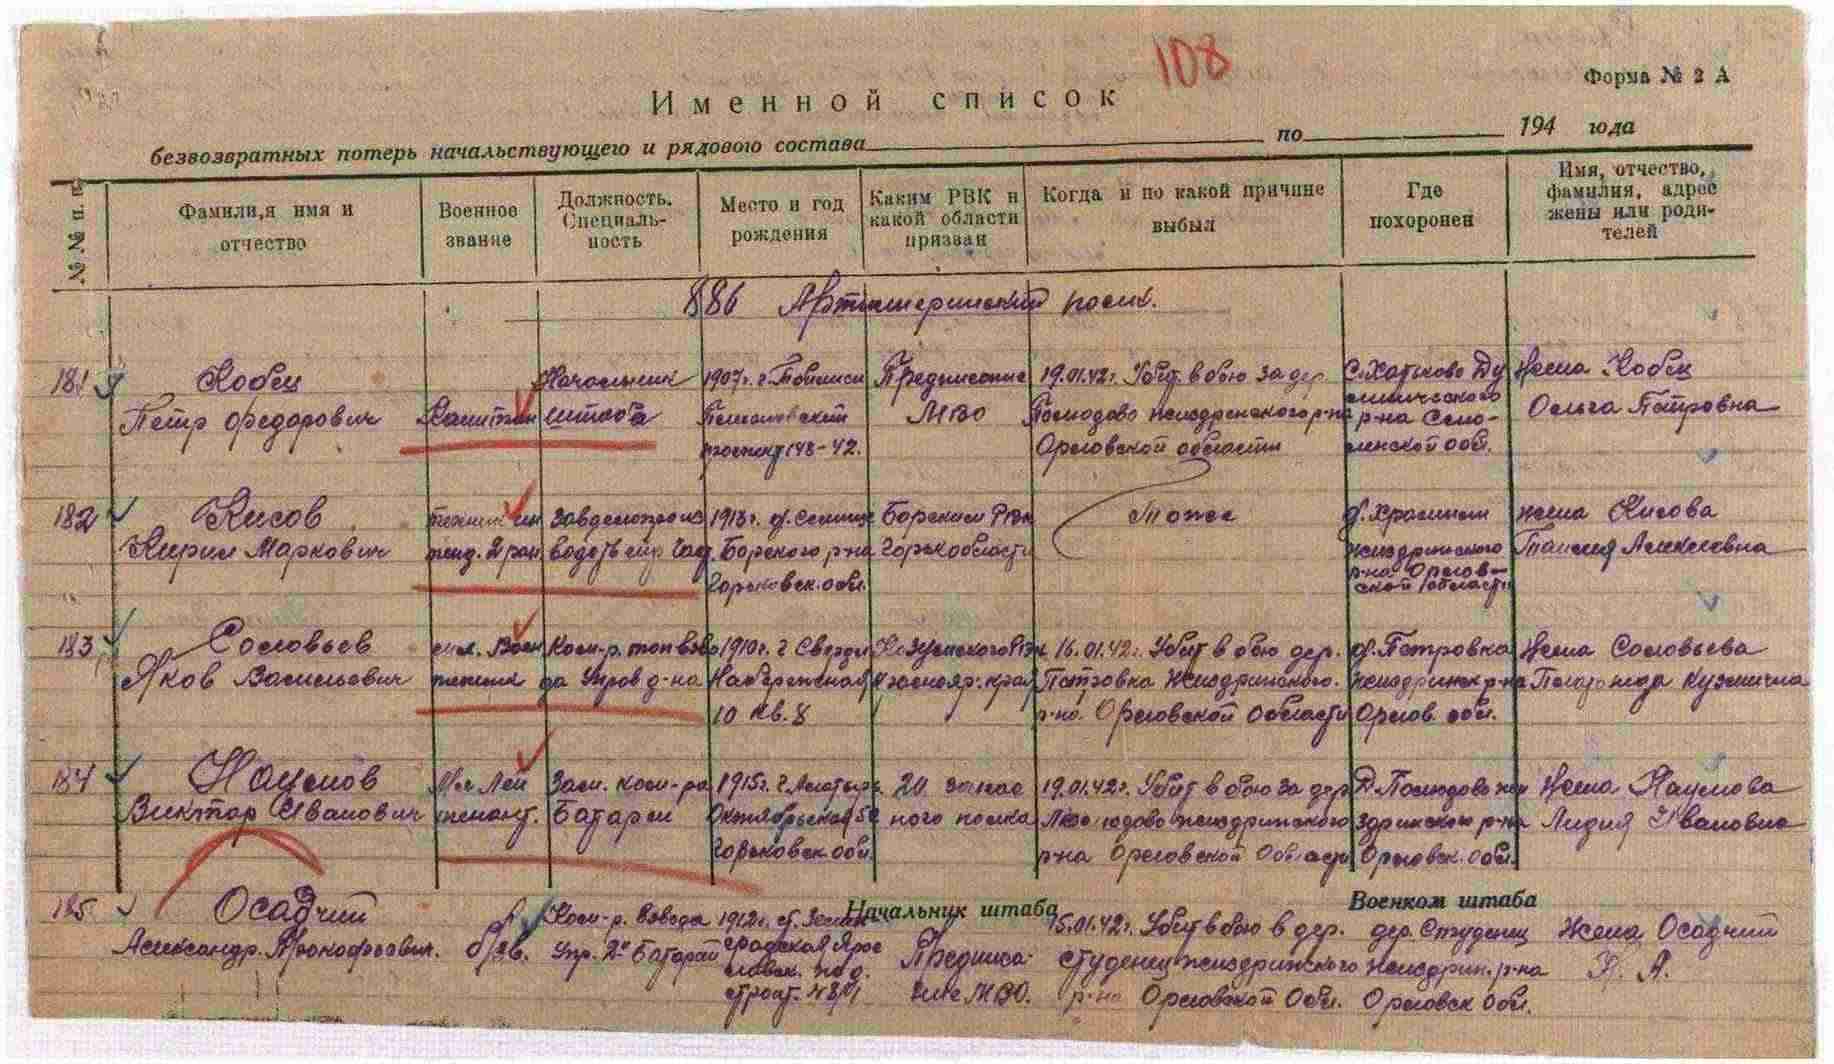 108
Форма № 2 А
Именной список
безвозвратных потерь начальствующего и рядового состава по 194 года
№№ п. п.
Фамили,я имя и
отчество
Военное
звание
Должность.
Специаль-
ность
Место и год
рождения
Каким РВК и
какой области
призван
Когда и по какой причине
выбыл
Где
похоронен
Имя, отчество,
фамилия, адрес
жены или роди-
телей
886 Артиллерийский полк.
181
Кобец
Петр Федорович
Капитан
Начальник
штаба
1907г. г. Тбилиси
проспект 148-42.
Предписание
МВО
19.01.42г. Убит в бою за дер.
Полюдово Жиздренского р-на
Орловской области
С. Хатьково Ду
миничского
р-на Смо-
ленской обл.
Жена Кобец
Ольга Петровна
182
Кисов
Кирил Маркович
техник ин
тенд. 2 ран
Завделопроиз
1913г. д.
Борского р-на
Горьковск. обл.
Борским РВК
Горьк области
Тоже
Жиздринского
р-на Орлов-
ской области
Жена Кисова
Таисия Алексеевна
183
Соловьев
Яков Васильевич
мл. Воен
техник
Ком-р. топ взво
да Управ д-на
1910г. г. Свердл
Набережная
10 кв. 8
Краснояр. края
16.01.42г. Убит в бою дер.
Петровка Жиздринского.
р-на. Орловской Области
д. Петровка
Жиздринск р-на
Орлов. обл.
Жена Соловьева
Кузминична
184
Наумов
Виктор Иванович
Мл Лей
тенант.
Зам. ком-ра
Батареи
1915г. г.
Октябрьская
Горьковск обл.
20 запас
ного полка
19.01.42г. Убит в бою за дер
Полюдово Жиздринского
р-на Орловской Области
Д. Полюдово Жи
здринского р-на
Орловск. обл.
Жена Наумова
Лидия Ивановна
Начальник штаба
Военком штаба
185
Осадчий
Александр. Прокофьевич.
б/зв.
Ком-р. Взвода
Упр. 2й Батареи
1912г. ст.
Предписа-
ние МВО.
15.01.42г. Убит в бою в дер.
Студенец Жиздрижского
р-на Орловской Обл.
дер. Студенец
Жиздрин. р-на
Орловск обл.
Жена Осадчий
А.